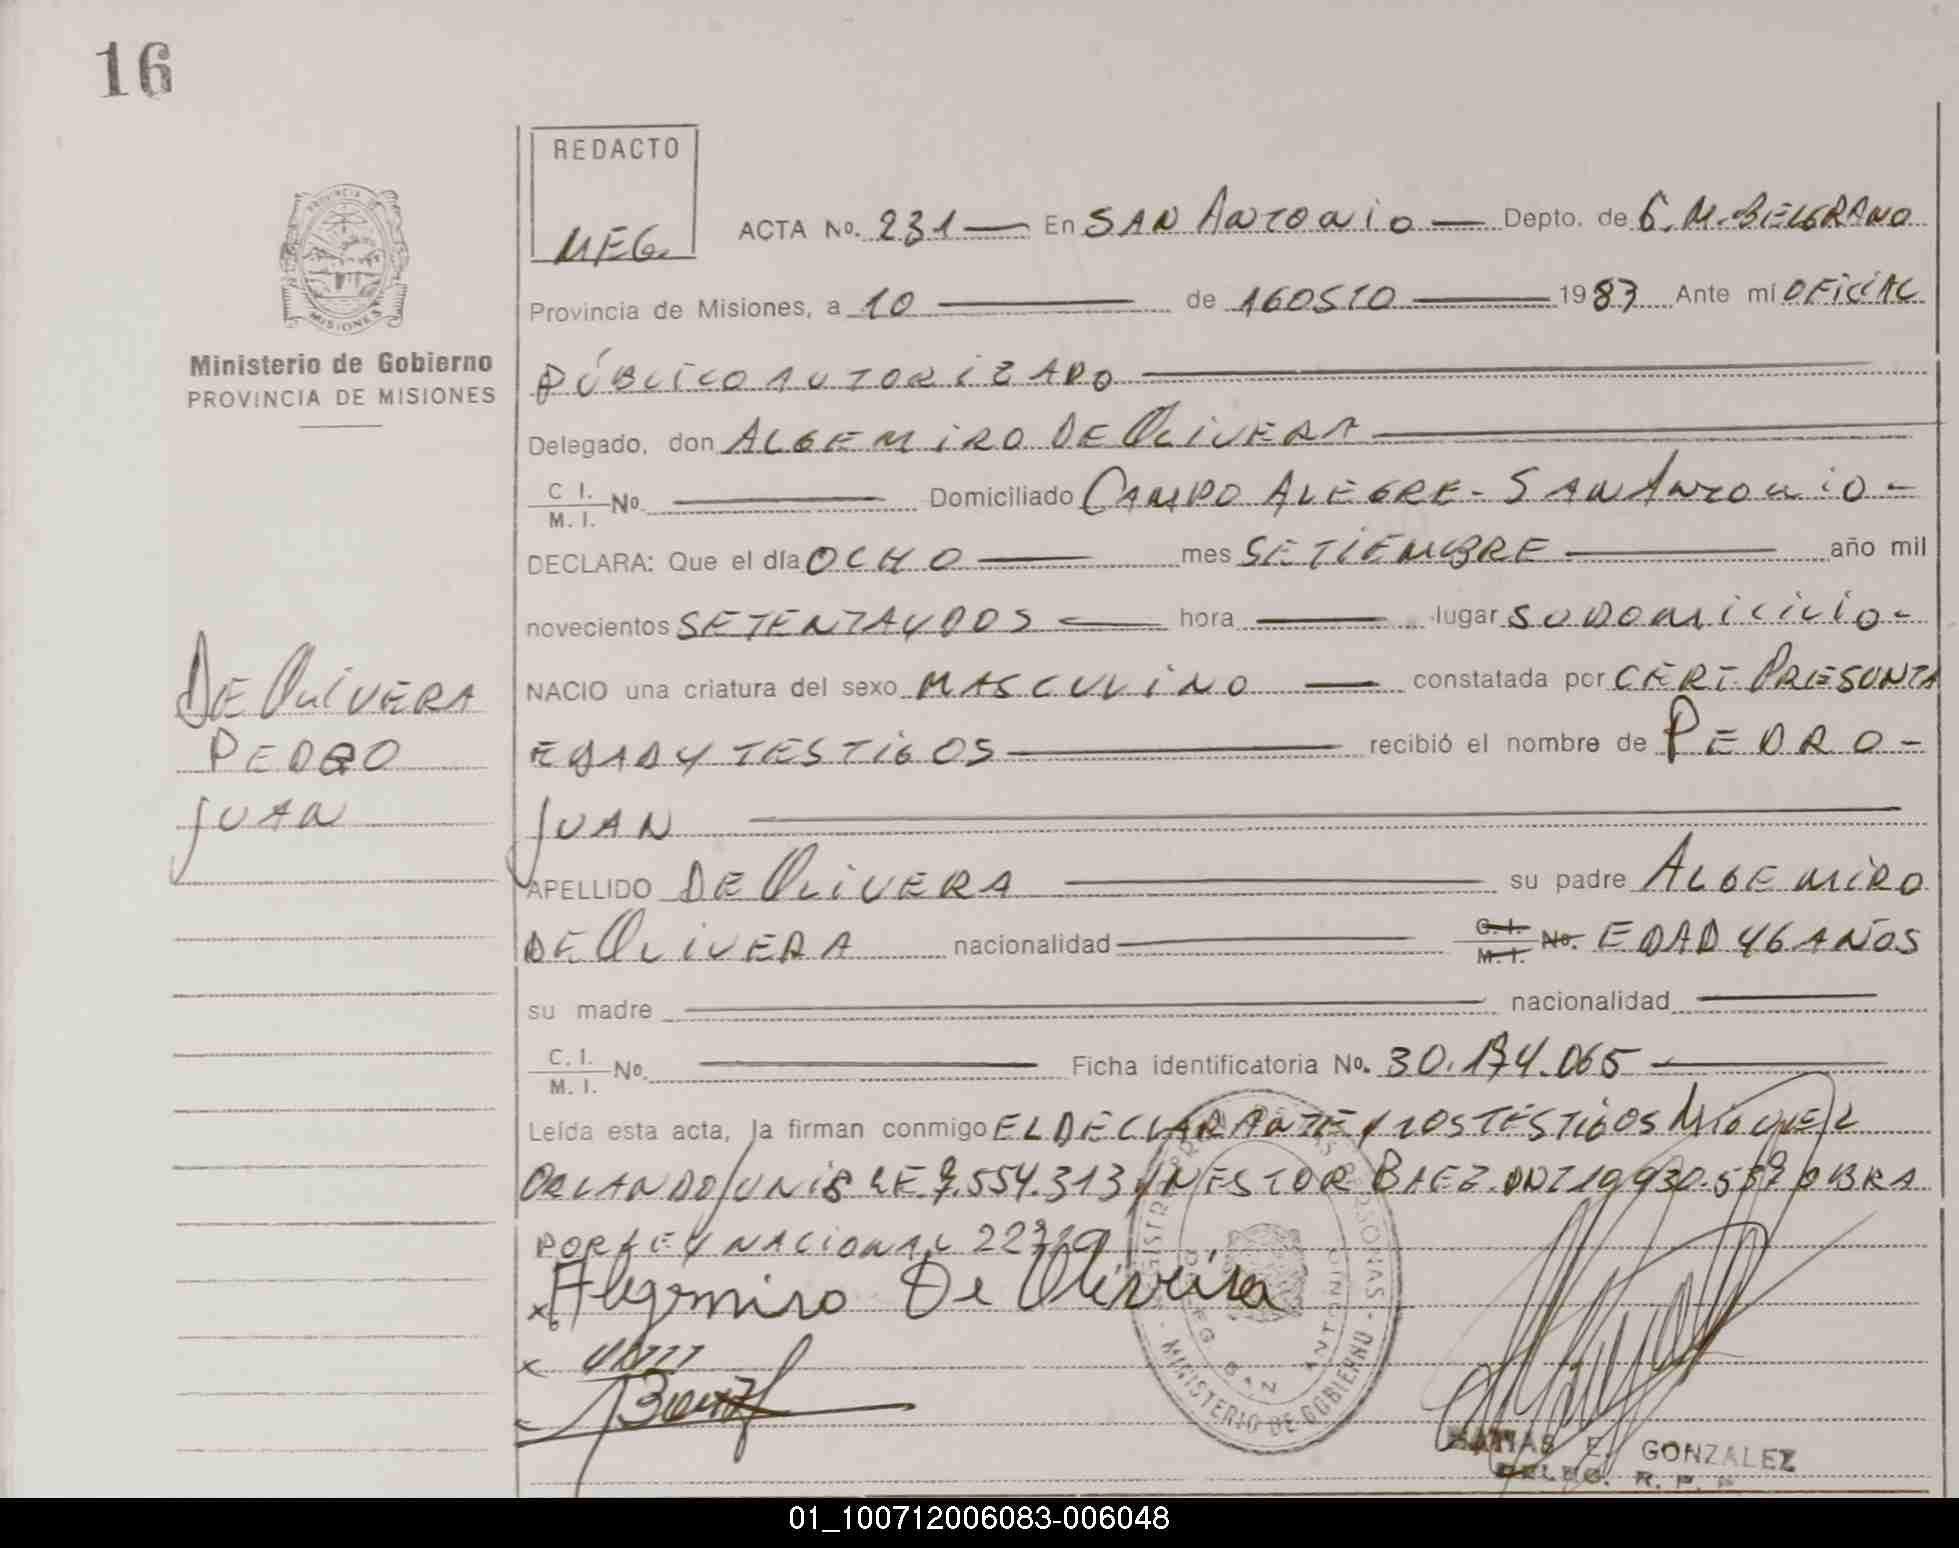 16
REDACTO
MEG.
ACTA No. 231 En SAN ANTONIO Depto. de G. M. BELGRANO
PROVINCIA DE
MISIONES
Ministerio de Gobierno
PROVINCIA DE MISIONES
Provincia de Misiones, a 10 de AGOSTO 1983 Ante mi OFICIAL
PÚBLICO AUTORIZADO
Delegado, don ALGEMIRO DE OLIVERA
C I. M. I. No. Domiciliado CAMPO ALEGRE - SAN ANTONIO -
DECLARA: Que el día OCHO mes SETIEMBRE año mil
novecientos SETENTA Y DOS hora lugar SU DOMICILIO -
DE OLIVERA
PEDRO
JUAN
NACIO una criatura del sexo MASCULINO constatada por CERT. PRESUNTA
EDAD Y TESTIGOS recibió el nombre de PEDRO -
JUAN
APELLIDO DE OLIVERA su padre ALGEMIRO
DE OLIVERA nacionalidad C. I. M. I. No. EDAD 46 AÑOS
su madre nacionalidad
C. I. M. I. No. Ficha identificatoria No. 30.174.065
Leída esta acta, la firman conmigo EL DECLARANTE Y LOS TESTIGOS MIGUEL
ORLANDO JUNIS LE. 7.554.313 Y NESTOR BAEZ DNI 19.930.589 OBRA
POR LEY NACIONAL
x Algemiro De Oliveira
x
Baez
MINISTERIO DE GOBIERNO
DELEG. SAN ANTONIO
MATIAS E. GONZALEZ
DELEG. R. P.
01_100712006083-006048